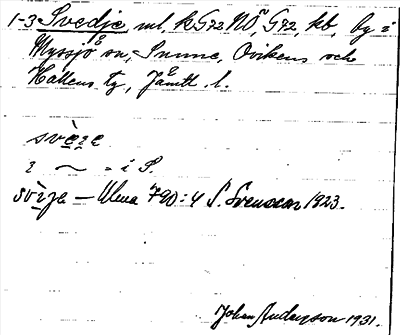 1-3 Svedje ml, k G92 NÖ, G92, kb, by i
Myssjö sn, Sunne, Ovikens och
Hallens tg, Jämtl. l.
svèʒe
i ~ - i S.
svìʒe — Ulma 790:4 S. Svensson 1923.
Johan Anderson 1931.